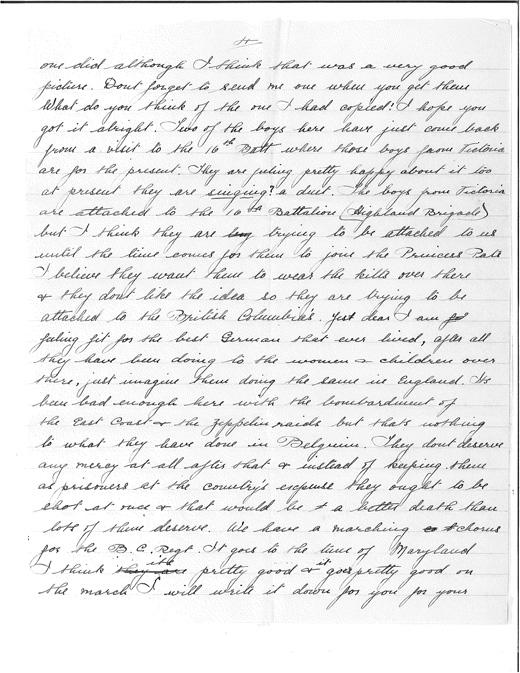 4
one did although I think that was a very good
picture. Dont forget to send me one when you get them
What do you think of the one I had copied? I hope you
got it alright. Two of the boys here have just come back
from a visit to the 16th Batt where those boys from Victoria
are for the present. They are fuling pretty happy about it too
at present they are singing? a duet. The boys from Victoria
are attached to the 16th Battalion (Highland Brigade)
but I think they are trying to be attached to us
until the time comes for them to join the Princess Pats
I believe they want them to wear the kilts over there
& they dont like the idea so they are trying to be
attached to the British Columbia's. Yes dear I am
fuling fit for the best German that ever lived, after all
they have been doing to the women & children over
there, just imagine them doing the same in England. Its
been bad enough here with the bombardment of
the East Coast & the zeppelin raids but thats nothing
to what they have done in Belgium. They dont deserve
any mercy at all after that & instead of keeping them
as prisoners at the country's expense they ought to be
shot at once & that would be a better death than
lots of them deserve. We have a marching chorus
for the B.C. Regt. It goes to the time of Maryland
I think they are its pretty good & it goes pretty good on
the march I will write it down for you for your